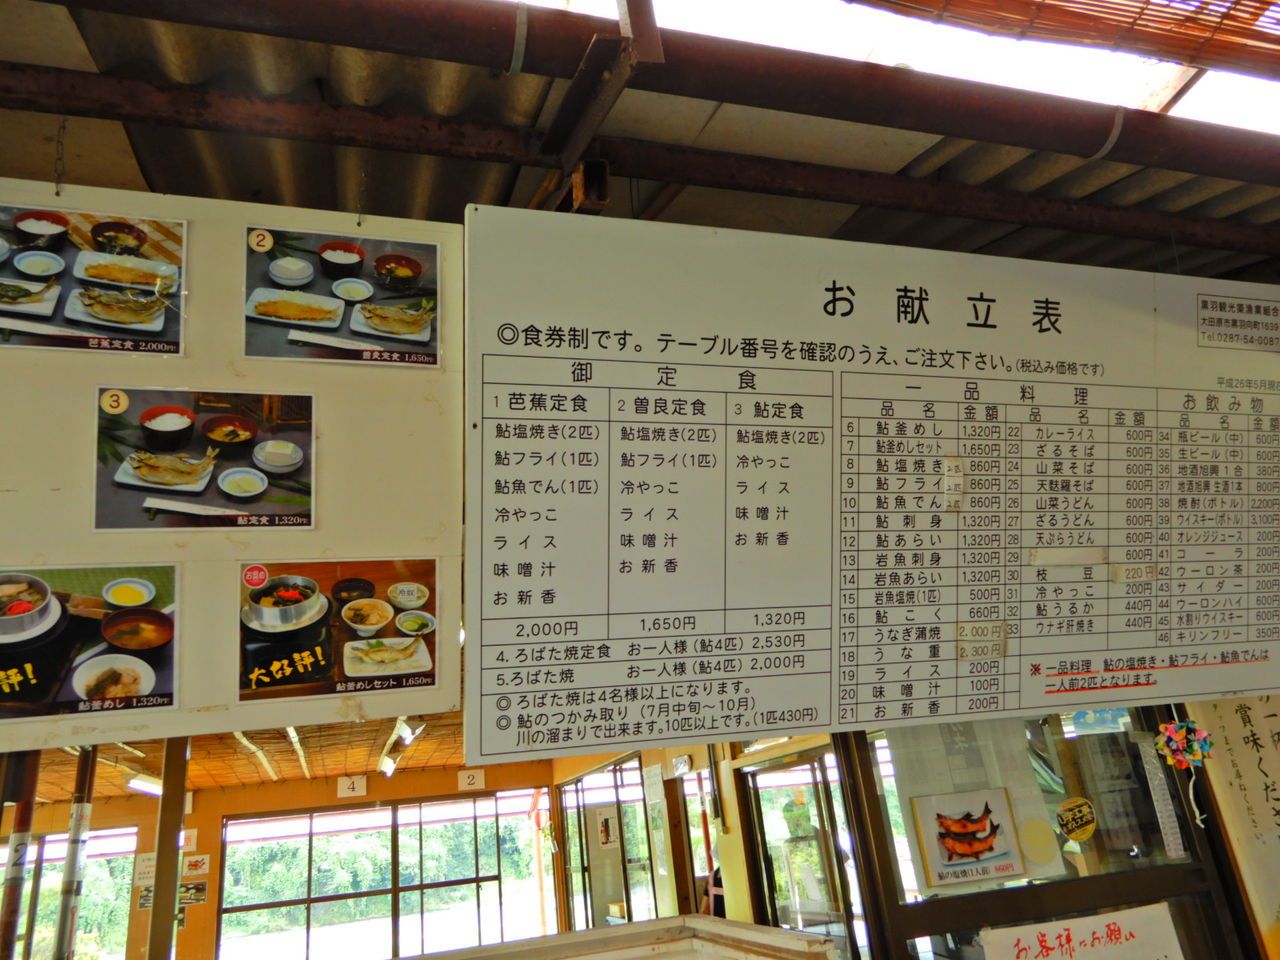 お献立表
黒羽観光簗漁業組合
大田原市黒羽向町1639
Tel.0287-54-0087
◎食券制です。テーブル番号を確認のうえ、ご注文下さい。(税込み価格です)
平成26年5月現在
御定食
1 芭蕉定食
鮎塩焼き(2匹)
鮎フライ(1匹)
鮎魚でん(1匹)
冷やっこ
ライス
味噌汁
お新香
2,000円
2 曽良定食
鮎塩焼き(2匹)
鮎フライ(1匹)
冷やっこ
ライス
味噌汁
お新香
1,650円
3 鮎定食
鮎塩焼き(2匹)
冷やっこ
ライス
味噌汁
お新香
1,320円
4.ろばた焼定食 お一人様(鮎4匹) 2,530円
5.ろばた焼 お一人様(鮎4匹) 2,000円
◎ろばた焼は4名様以上になります。
◎鮎のつかみ取り(7月中旬〜10月)
川の溜まりで出来ます。10匹以上です。(1匹430円)
一品料理
品名 金額 品名 金額
6 鮎釜めし 1,320円
7 鮎釜めしセット 1,650円
8 鮎塩焼き 1匹 860円
9 鮎フライ 1匹 860円
10 鮎魚でん 1匹 860円
11 鮎刺身 1,320円
12 鮎あらい 1,320円
13 岩魚刺身 1,320円
14 岩魚あらい 1,320円
15 岩魚塩焼(1匹) 500円
16 鮎こく 660円
17 うなぎ蒲焼 2,000円
18 うな重 2,300円
19 ライス 200円
20 味噌汁 100円
21 お新香 200円
22 カレーライス 600円
23 ざるそば 600円
24 山菜そば 600円
25 天麩羅そば 600円
26 山菜うどん 600円
27 ざるうどん 600円
28 天ぷらうどん 600円
29 600円
30 枝豆 220円
31 冷やっこ 200円
32 鮎うるか 440円
33 ウナギ肝焼き 440円
お飲み物
品名 金額
34 瓶ビール(中) 600円
35 生ビール(中) 600円
36 地酒旭興1合 380円
37 地酒旭興生酒1本 800円
38 焼酎(ボトル) 2,200円
39 ウイスキー(ボトル) 3,100円
40 オレンジジュース 200円
41 コーラ 200円
42 ウーロン茶 200円
43 サイダー 200円
44 ウーロンハイ 600円
45 水割りウイスキー 600円
46 キリンフリー 350円
※一品料理 鮎の塩焼き・鮎フライ・鮎魚でんは
一人前2匹となります。
芭蕉定食 2,000円
2
曽良定食 1,650円
3
鮎定食 1,320円
評!
鮎釜めし 1,320円
お奨め
冷奴
大好評!
鮎釜めしセット 1,650円
4
2
2
鮎の塩焼(1人前) 860円
お客様にお願い
賞味くださ